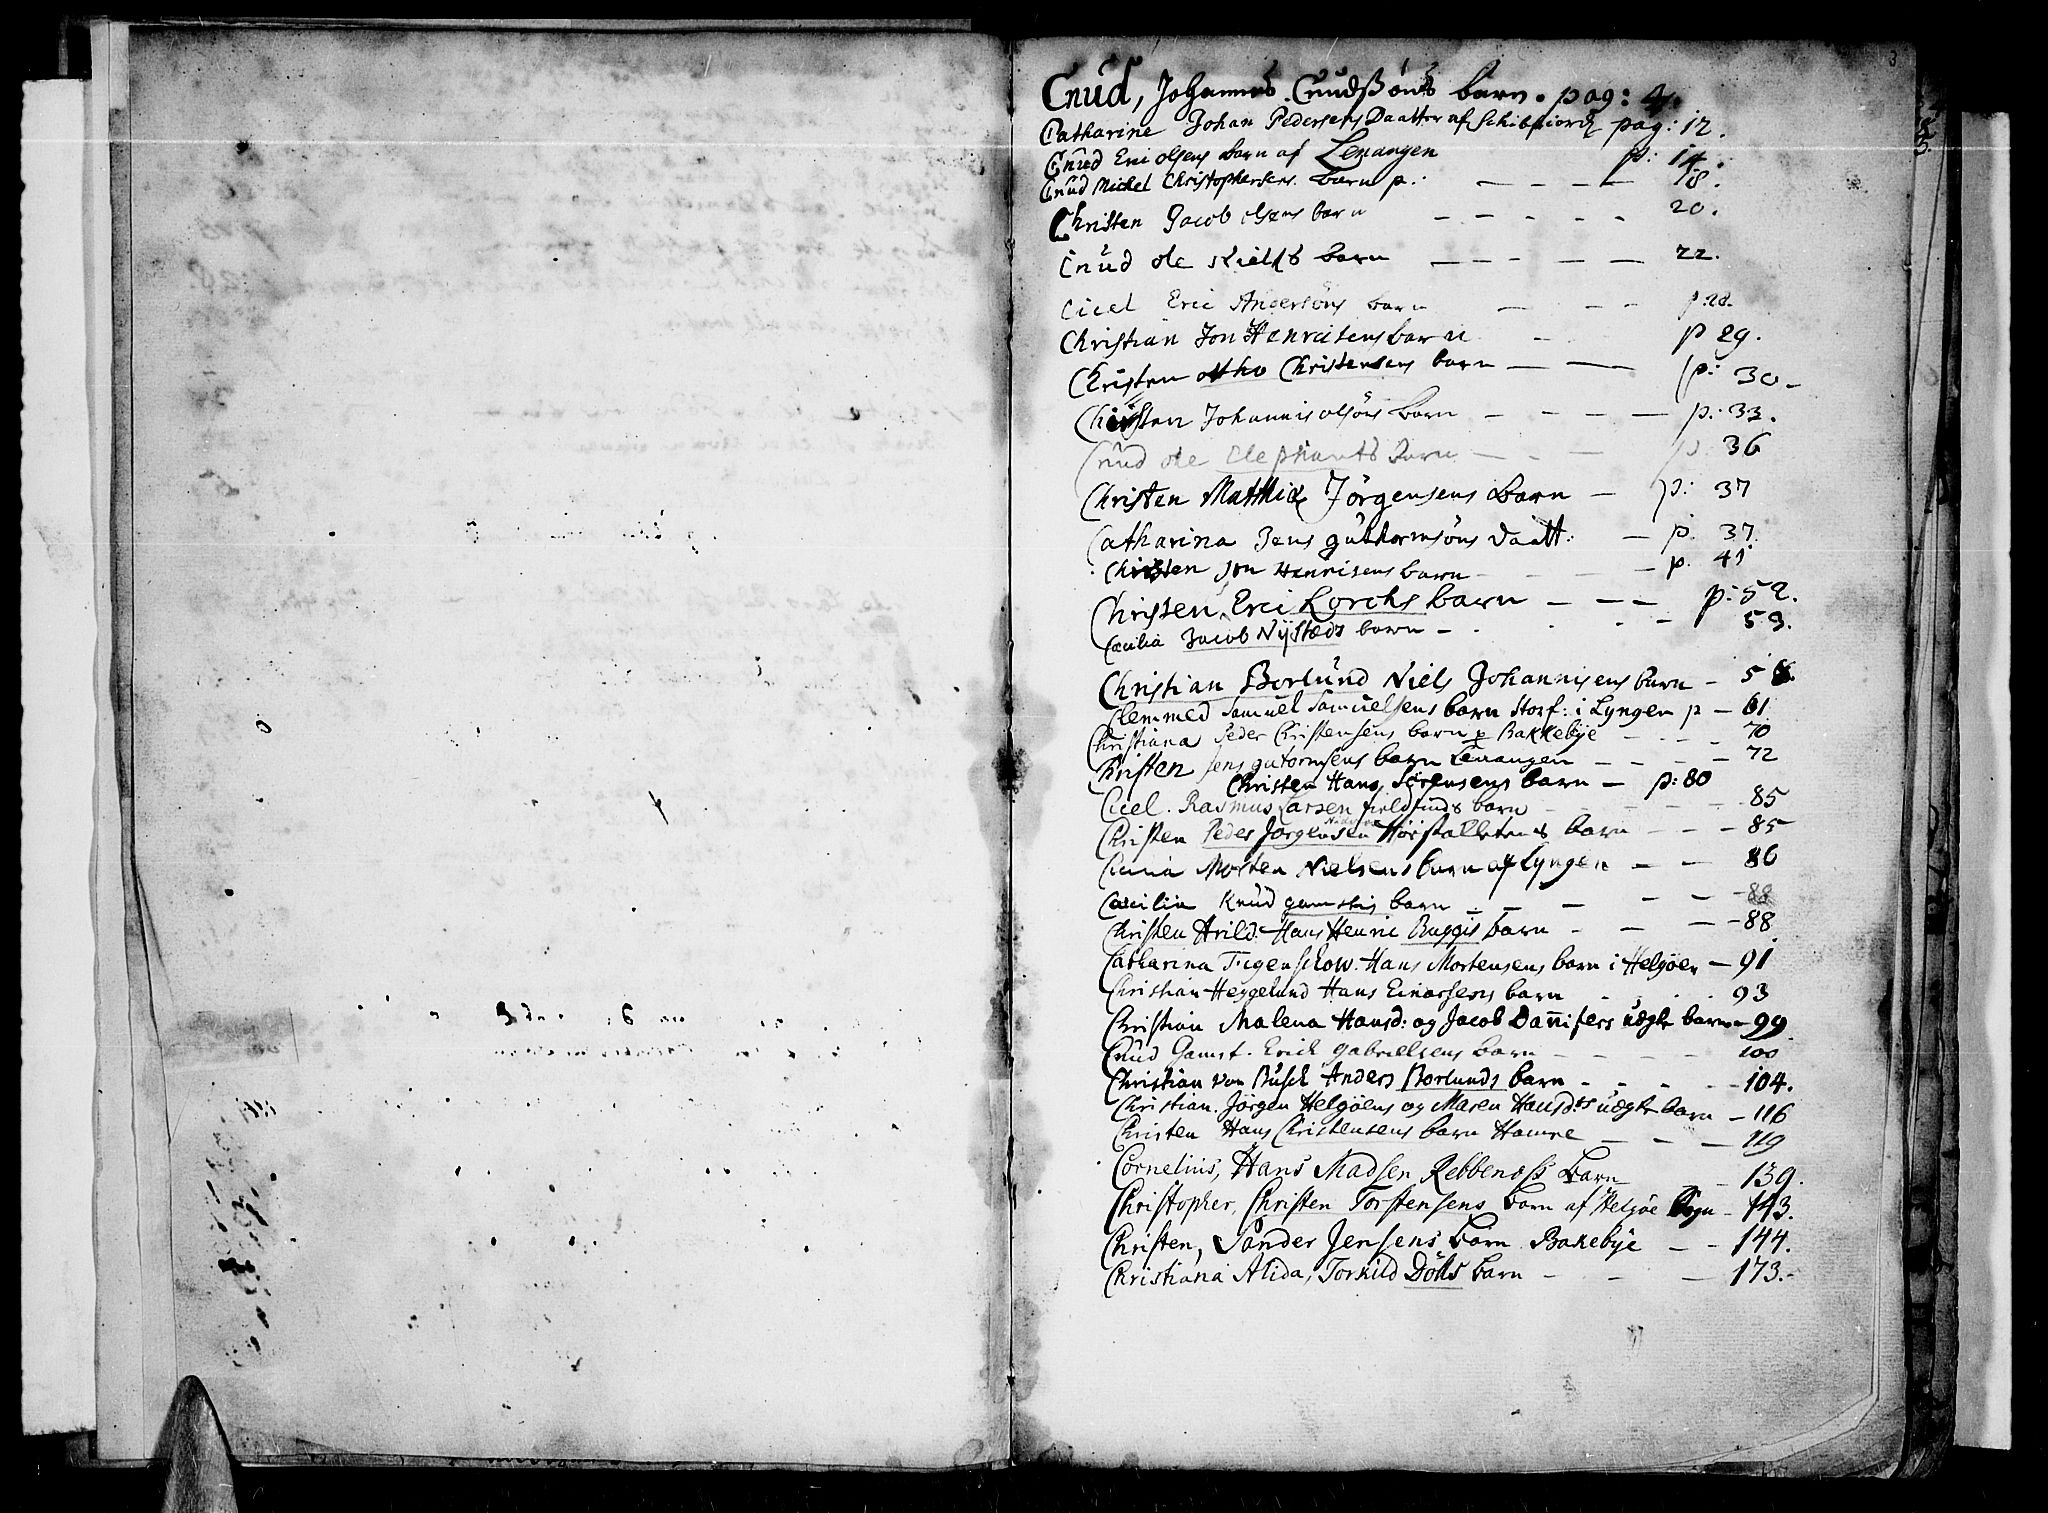 3
Cnud, Johannes Cnudsöns barn. pag: 4.
Catharine Johan Pedersens Daatter af Schibfiord pag: 12.
Cnud Eric Olsens barn af Lenangen p: 14.
Cnud Michel Christophersens barn p: 18.
Christen Jacob Olsens barn 20.
Cnud Ole Kields barn 22.
Cicel Eric Andersöns barn p. 28.
Christian Jon Henricsens barn p 29.
Christen Otho Christensens barn p: 30
Christen Johannis Olsöns barn p: 33.
Cnud Ole Elephants barn p: 36
Christen Matthiæ Jörgensens barn p: 37
Catharina Jens Guthormsöns Daatt: p. 37.
Christen Jon Henricsens barn p. 41
Christen Erci Lorchs barn p: 52.
Cæcilia Jacob Nÿstæds barn 53.
Christian Borlund Niels Johannisens barn 58.
Clemmed Samuel Samuelsens barn Storf: i Lyngen p 61
Christiana Peder Christensens barn p Bakkebÿe 70
Christen Jens Gutormsens barn Lenangen 72
Christen Hans Sörensens barn p: 80
Cicel. Rasmus Larsen fieldfinds barn 85
Christen Peder Jörgensen barn 85
Morten Nielsens barn af Lyngen 86
Cæcilia Knud Gamstis barn 88
Christen Arild. Hans Henric Ruggis barn 88
Catharina Figenschow. Hans Mortensens barn i Helgöen 91
Christian Heggelund Hans Einarsens barn 93
Christian Malena Hansd: og Jacob Dannifers uægte barn 99
Cnud Gamst. Erick Gabrielsens barn 100
Christian von Busch Anders Borlunds barn 104.
Christian. Jörgen Helgöens og Maren Hansd:rs uægte barn 116
Christen Hans Christensens barn Hamre 119
Cornelius, Hans Madsen Rebbenæss barn 139.
Christopher, Christen Torstensens barn af Helgöe Sogn 143.
Christen, Sander Jensens barn Bakebÿe 144.
Christiana Alida, Torkild Dölls barn 173.